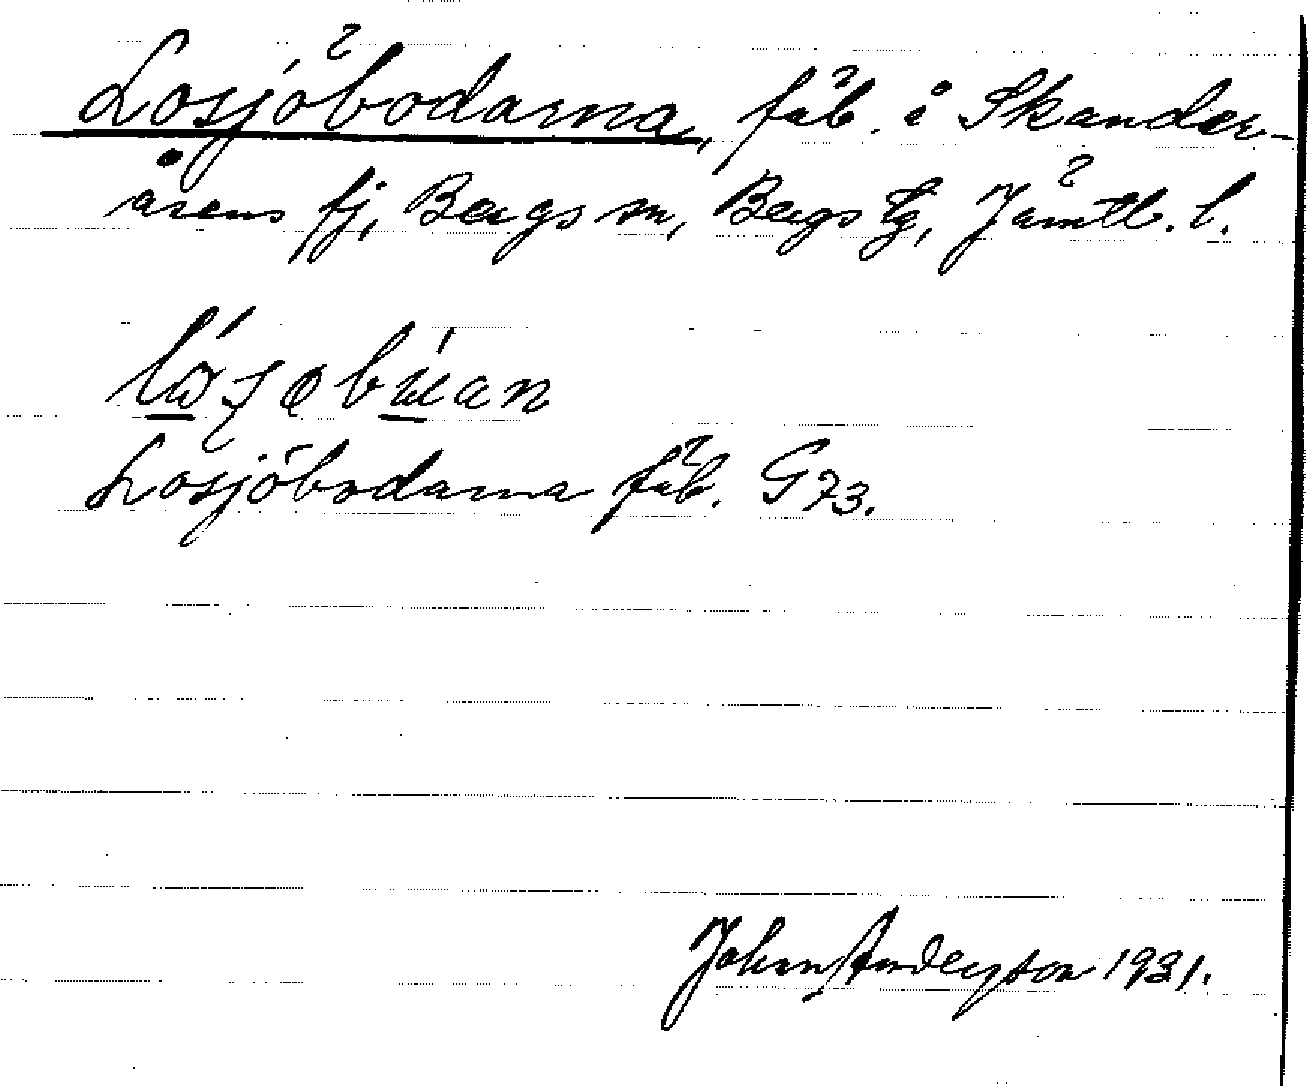 Losjöbodarna, fäb. i Skander-
åsens fj, Bergs sn, Bergs tg, Jämtl. l.
Losjöbodarna fäb. G73.
John Andersson 1931.